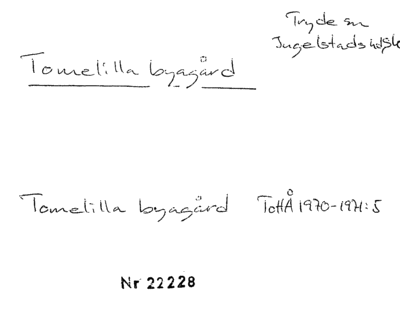 Tryde sn
Ingelstads hd Sk
Tomelilla byagård
Tomelilla byagård ToHÅ 1970-1971:5
Nr 22228